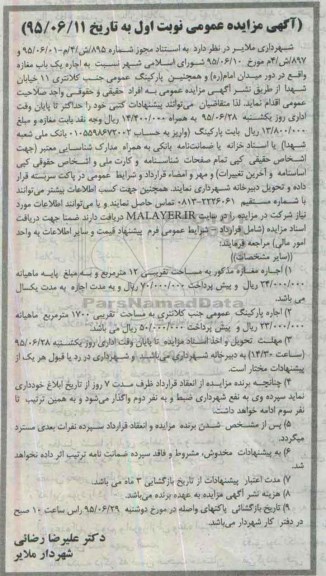 (آگهی مزایده عمومی نوبت اول به تاریخ ۹۵/۰۶/۱۱)
شهرداری ملایر در نظر دارد به استناد مجوز شماره ۸۹۵/ش/۴/م-۹۵/۰۶/۰۱ و
۸۹۷/ش/۴م مورخ ۹۵/۰۶/۱۰ شورای اسلامی شهر نسبت به اجاره یک باب مغازه
واقع در دور میدان امام(ره) و همچنین پارکینگ عمومی جنب کلانتری ۱۱ خیابان
شهدا از طریق نشر آگهی مزایده عمومی به افراد حقیقی و حقوقی واجد صلاحیت
عمومی اقدام نماید. لذا متقاضیان می‌توانند پیشنهادات کتبی خود را حداکثر تا پایان وقت
اداری روز یکشنبه ۹۵/۰۶/۲۸ به همراه ۱۴/۴۰۰/۰۰۰ ریال وجه نقد بابت مغازه و مبلغ
۱۳/۸۰۰/۰۰۰ ریال بابت پارکینگ (واریز به حساب ۰۱۰۵۵۹۸۶۷۳۰۰۲ بانک ملی شعبه
شهدا) یا اسناد خزانه یا ضمانت‌نامه بانکی به همراه مدارک شناسایی معتبر (جهت
اشخاص حقیقی کپی تمام صفحات شناسنامه و کارت ملی و اشخاص حقوقی کپی
اساسنامه و آخرین تغییرات) و مهر و امضاء قرارداد و شرایط عمومی در پاکت سربسته قرار
داده و تحویل دبیرخانه شهرداری نمایند. همچنین جهت کسب اطلاعات بیشتر می‌توانند
با شماره مستقیم ۲۲۲۶۰۶۱-۰۸۱۳ تماس حاصل نمایند و یا می‌توانند اطلاعات مورد
نیاز شرکت در مزایده را در سایت MALAYER.IR دریافت دارند ضمنا جهت دریافت
اسناد مزایده (شامل قرارداد - شرایط عمومی فرم پیشنهاد قیمت و سایر اطلاعات به واحد
امور مالی) مراجعه فرمایند:
((سایر مشخصات))
۱) اجاره مغازه مذکور به مساحت تقریبی ۱۲ مترمربع و به مبلغ پایه ماهیانه
۲۴/۰۰۰/۰۰۰ ریال و پیش پرداخت ۷۰/۰۰۰/۰۰۰ ریال و به مدت اجاره به مدت یکسال
می باشد.
۲) اجاره پارکینگ عمومی جنب کلانتری به مساحت تقریبی ۱۷۰۰ مترمربع ماهیانه
۲۳/۰۰۰/۰۰۰ ریال و پیش پرداخت ۵۰/۰۰۰/۰۰۰ ریال می باشد.
۳) مهلت تحویل و اخذ اسناد مزایده تا پایان وقت اداری روز یکشنبه ۹۵/۰۶/۲۸
(ساعت ۱۴/۳۰) به دبیرخانه شهرداری می‌باشد و شهرداری در رد یا قبول هر یک از
پیشنهادات مختار است.
۴) چنانچه برنده مزایده از انعقاد قرارداد ظرف مدت ۷ روز از تاریخ ابلاغ خودداری
نماید سپرده وی به نفع شهرداری ضبط و به نفر دوم واگذار می‌شود و به همین ترتیب تا
نفر سوم ادامه خواهد داشت.
۵) پس از مشخص شدن برنده مزایده و انعقاد قرارداد سپرده نفرات بعدی مسترد
میگردد.
۶) به پیشنهادات مخدوش، مشروط و فاقد سپرده ضمانت نامه ترتیب اثر داده نخواهد
شد.
۷) مدت اعتبار پیشنهادات از تاریخ بازگشایی ۳ ماه می باشد.
۸) هزینه نشر آگهی مزایده به عهده برنده می‌باشد.
۹) تاریخ بازگشائی پاکتهای واصله در مورخ دوشنبه ۹۵/۰۶/۲۹ راس ساعت ۱۰ صبح
در دفتر کار شهردار می‌باشد.
دکتر علیرضا رضائی
شهردار ملایر